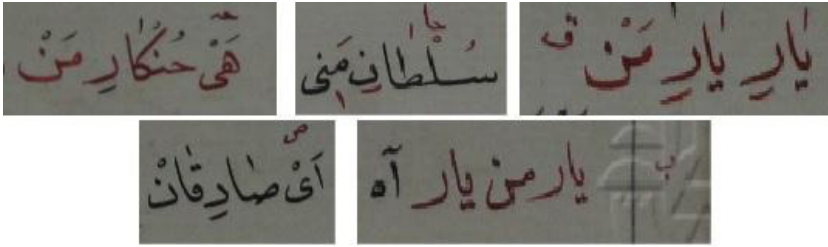 يَارِ يَارِ مَنْ
سُلْطَانِ مَنِى
هَىْ خُنْكَارِ مَنْ
يار من يار آه
اَىْ صَادِقَانْ